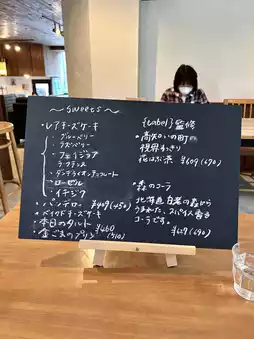 ～sweets～
・レアチーズケーキ
ブルーベリー
ラズベリー
フェイジョア
ラ・フランス
ダンデライオンチョコレート
ローゼル
イチジク
・パンデロー ¥409(450)
・ベイクドチーズケーキ
・本日のタルト
・金ごまのプリン ¥460(510)
{Label}監修
・高知・いの町
視界すっきり
花はぶ茶 ¥609(690)
・森のコーラ
北海道白老の森から
うまれた、スパイス香る
コーラです。
¥609(690)